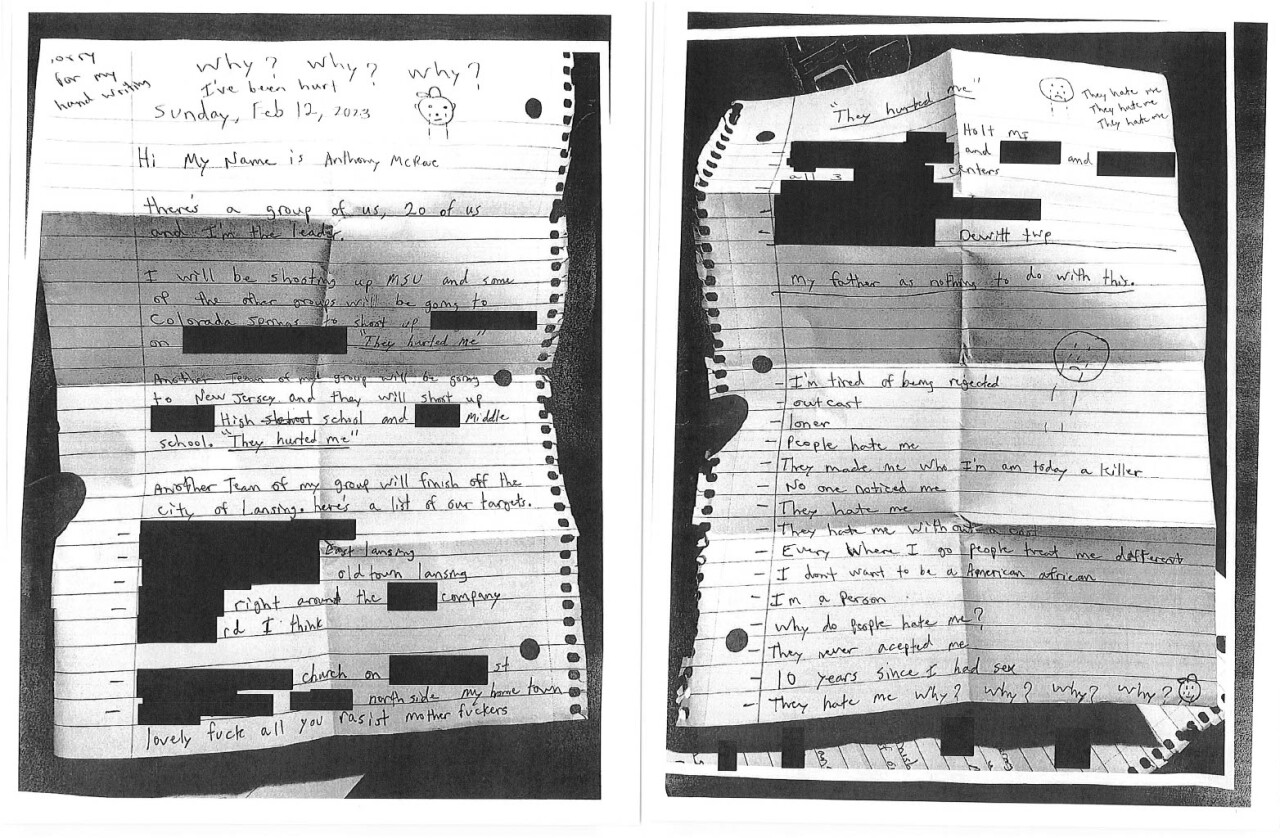 sorry
for my
hand writing
Why? Why? Why?
I've been hurt
Sunday, Feb 12, 2023
Hi My Name is Anthony McRae
there's a group of us, 20 of us
and I'm the leader.
I will be shooting up MSU and some
of the other groups will be going to
Colorada Springs to shoot up
on "They hurted me"
Another Team of my group will be going
to New Jersey and they will shoot up
High school and Middle
school. "They hurted me"
Another Team of my group will finish off the
city of Lansing. here's a list of our targets.
East lansing
old town lansing
right around the company
rd I think
church on st
north side my home town
lovely fuck all you rasist mother fuckers
"They hurted me"
They hate me
They hate me
They hate me
Holt MI
and and
all 3 centers
Dewitt twp
My father as nothing to do with this.
- I'm tired of being rejected
- outcast
- loner
- People hate me
- They made me who I'm am today a killer
- No one noticed me
- They hate me
- They hate me with out a
- Every Where I go people treat me different
- I don't want to be a American african
- I'm a Person
- Why do people hate me?
- They never acepted me
- 10 years since I had sex
- They hate me Why? Why? Why? Why?